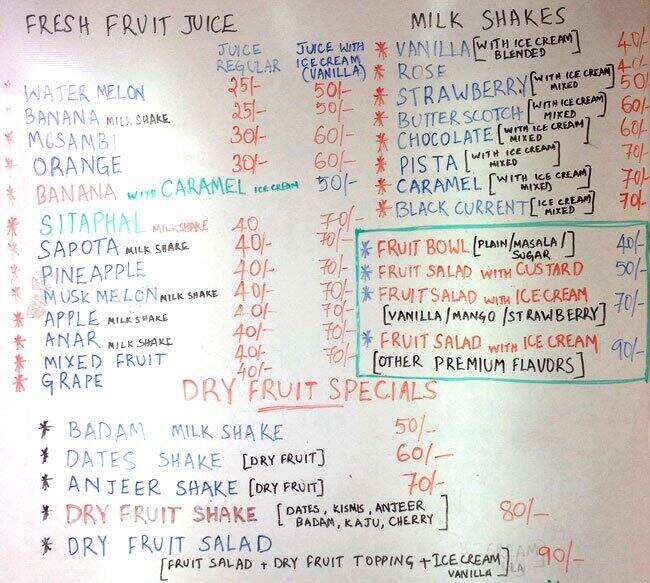 FRESH FRUIT JUICE
JUICE REGULAR
JUICE WITH ICE CREAM (VANILLA)
WATER MELON 25/- 50/-
BANANA MILK SHAKE 25/- 50/-
MOSAMBI 30/- 60/-
ORANGE 30/- 60/-
BANANA WITH CARAMEL ICE CREAM 50/-
SITAPHAL MILKSHAKE 40 70/-
SAPOTA MILK SHAKE 40/- 70/-
PINEAPPLE 40/- 70/-
MUSK MELON MILK SHAKE 40/- 70/-
APPLE MILK SHAKE 40/- 70/-
ANAR MILK SHAKE 40/- 70/-
MIXED FRUIT 40/- 70/-
GRAPE 40/-
MILK SHAKES
VANILLA [WITH ICE CREAM BLENDED] 40/-
ROSE 40/-
STRAWBERRY [WITH ICE CREAM MIXED] 50/-
BUTTERSCOTCH [WITH ICE CREAM MIXED] 60/-
CHOCOLATE [WITH ICE CREAM MIXED] 60/-
PISTA [WITH ICE CREAM MIXED] 70/-
CARAMEL [WITH ICE CREAM MIXED] 70/-
BLACK CURRENT [ICE CREAM MIXED] 70/-
FRUIT BOWL [PLAIN/MASALA/SUGAR 40/-
FRUIT SALAD WITH CUSTARD 50/-
FRUIT SALAD WITH ICE CREAM 70/-
[VANILLA/MANGO/STRAWBERRY]
FRUIT SALAD WITH ICE CREAM 90/-
[OTHER PREMIUM FLAVORS]
DRY FRUIT SPECIALS
BADAM MILK SHAKE 50/-
DATES SHAKE [DRY FRUIT] 60/-
ANJEER SHAKE [DRY FRUIT] 70/-
DRY FRUIT SHAKE [DATES, KISMIS, ANJEER BADAM, KAJU, CHERRY] 80/-
DRY FRUIT SALAD
[FRUIT SALAD + DRY FRUIT TOPPING + ICE CREAM VANILLA] 90/-